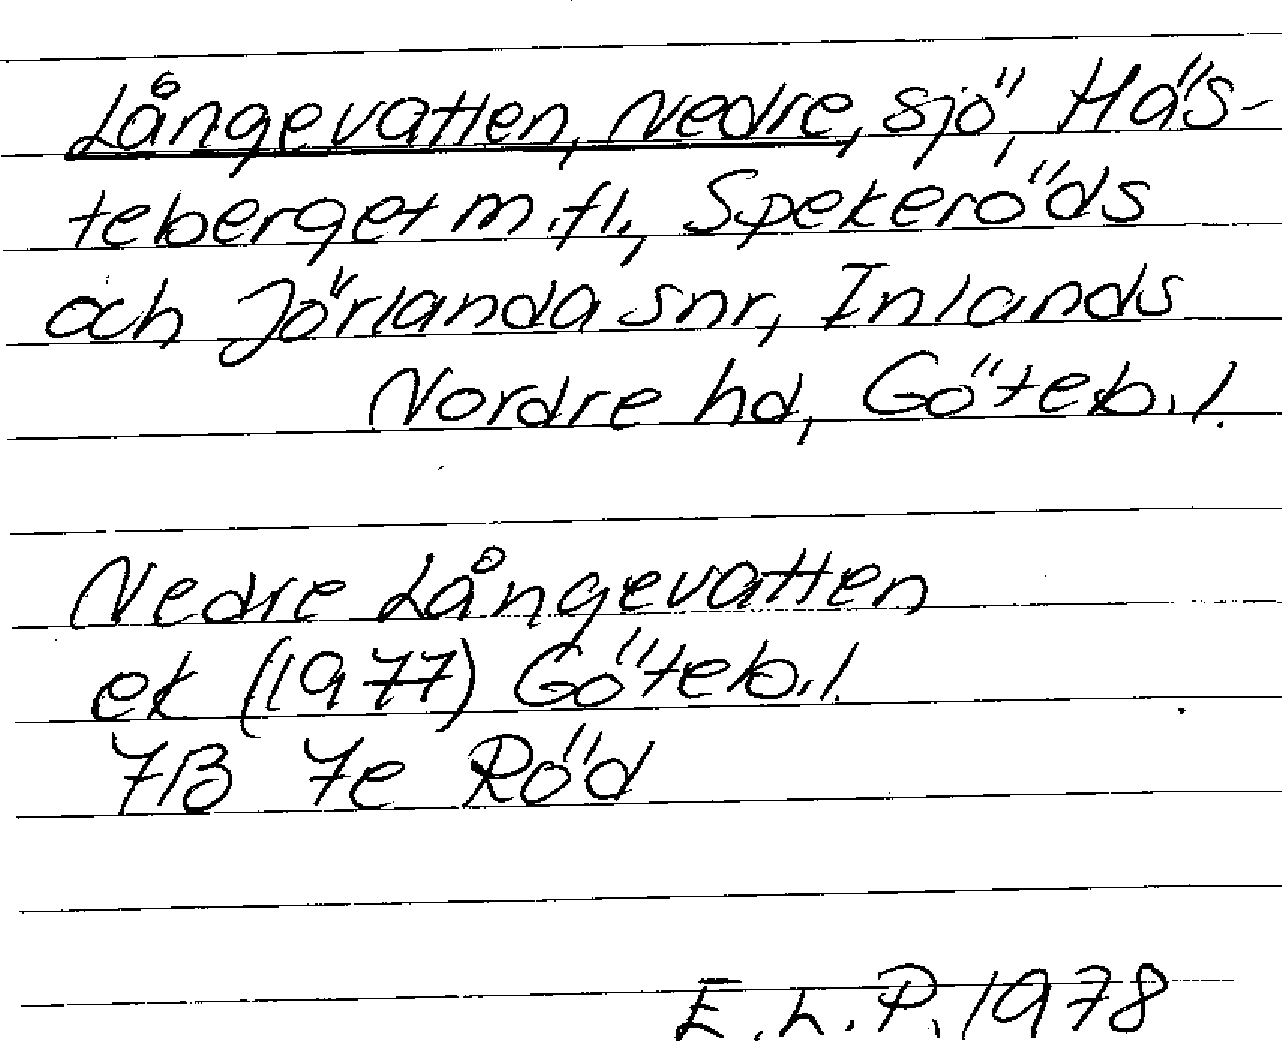 Långevatten, Nedre, sjö, Häs-
teberget m.fl., Spekeröds
och Jörlanda snr, Inlands
Nordre hd, Göteb.l.
Nedre Långevatten
ek (1977) Göteb.l.
7B 7e Röd
E.L.P. 1978